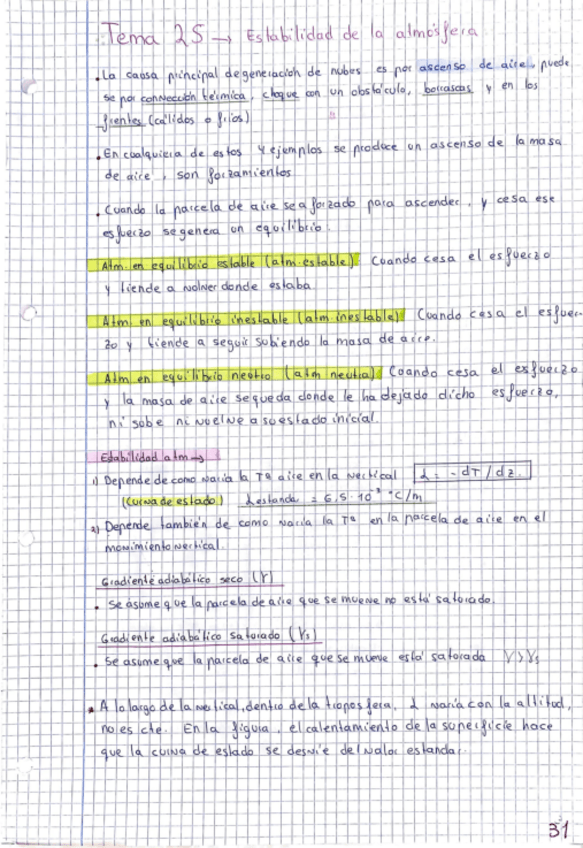 Tema 25 → Estabilidad de la atmósfera
• La causa principal de generación de nubes es por ascenso de aire, puede
se por convección térmica, choque con un obstáculo, borrascas y en los
frentes (cálidos o fríos)
• En cualquiera de estos 4 ejemplos se produce un ascenso de la masa
de aire, son forzamientos
• Cuando la parcela de aire sea forzado para ascender, y cesa ese
esfuerzo se genera un equilibrio.
Atm. en equilibrio estable (atm. estable) Cuando cesa el esfuerzo
y tiende a volver donde estaba
Atm. en equilibrio inestable (atm inestable) Cuando cesa el esfuer-
zo y tiende a seguir subiendo la masa de aire.
Atm en equilibrio neutro (atm neutra) Cuando cesa el esfuerzo
y la masa de aire se queda donde le ha dejado dicho esfuerzo,
ni sube ni vuelve a su estado inicial.
Estabilidad atm →
1) Depende de como varía la Tª aire en la vertical λ = -dT/dz.
(curva de estado) λestanda = 6,5·10⁻³ °C/m
2) Depende también de como varía la Tª en la parcela de aire en el
movimiento vertical.
Gradiente adiabático seco (Γ)
• Se asume que la parcela de aire que se mueve no está saturado.
Gradiente adiabático saturado (Γs)
• Se asume que la parcela de aire que se mueve está saturada Γ>Γs
• A lo largo de la vertical, dentro de la troposfera, λ varía con la altitud,
no es cte. En la figura, el calentamiento de la superficie hace
que la curva de estado se desvíe del valor estandar.
31